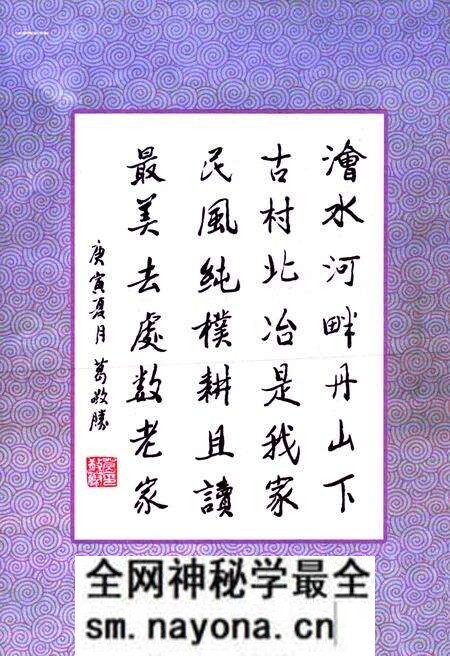 澮水河畔丹山下
古村北冶是我家
民風純樸耕且讀
最美去處数老家
庚寅夏月 葛敬勝
全网神秘学最全
sm.nayona.cn